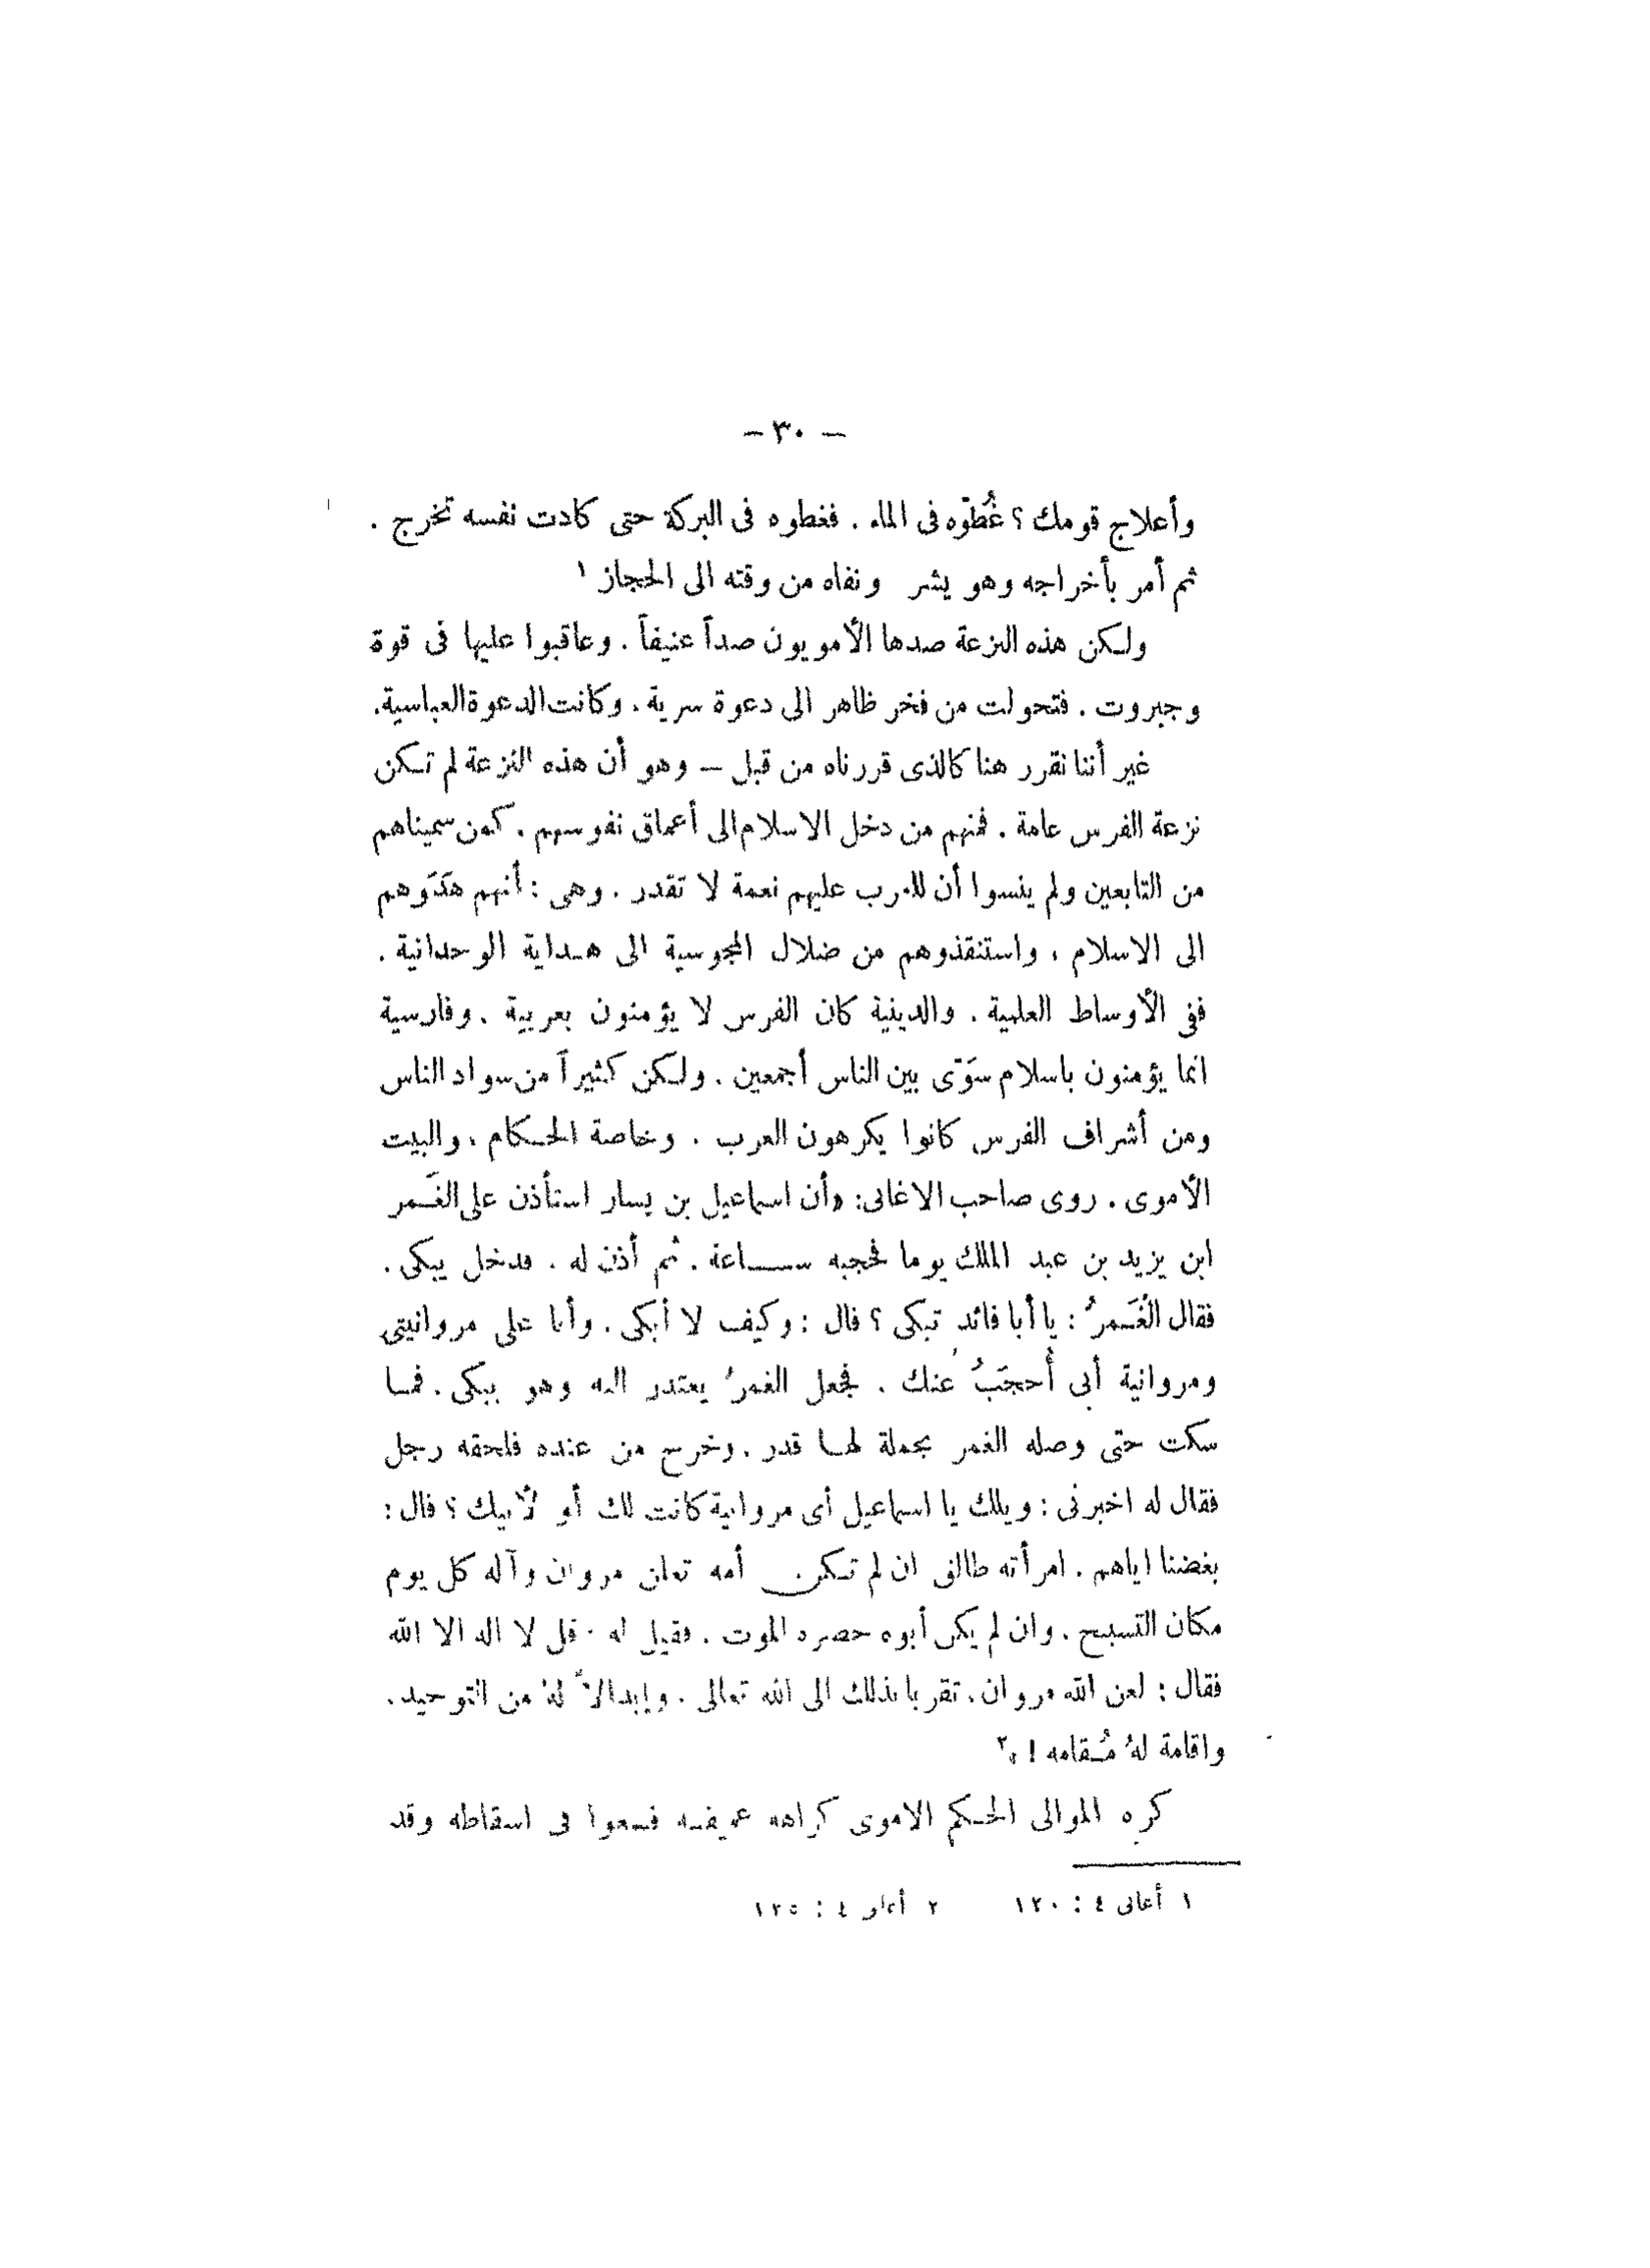 — ٣٠ —
وأعلاج قومك ؟ غُطوّه فى الماء . فغطوه فى البركة حتى كادت نفسه تخرج .
ثم أمر بأخراجه وهو يشر ونفاه من وقته الى الحجاز ١
ولكن هذه النزعة صدها الأمويون صداً عنيفاً . وعاقبوا عليها فى قوة
وجبروت . فتحولت من فخر ظاهر الى دعوة سرية . وكانت الدعوة العباسية .
غير أننا نقرر هنا كالذى قررناه من قبل – وهو أن هذه النزعة لم تكن
نزعة الفرس عامة . فمنهم من دخل الاسلام الى أعماق نفوسهم . كمن سميناهم
من التابعين ولم ينسوا أن للعرب عليهم نعمة لا تقدر . وهى : أنهم هَدَوهم
الى الاسلام ، واستنقذوهم من ضلال المجوسية الى هداية الوحدانية .
ففى الأوساط العلمية . والدينية كان الفرس لا يؤمنون بعربية . وفارسية
انما يؤمنون باسلام سَوّى بين الناس أجمعين . ولكن كثيراً من سواد الناس
ومن أشراف الفرس كانوا يكرهون العرب . وخاصة الحكام ، والبيت
الأموى . روى صاحب الاغانى : «أن اسماعيل بن يسار استأذن على الغَمر
ابن يزيد بن عبد الملك يوما فحجبه ساعة . ثم أذن له . فدخل يبكى .
فقال الغَمرُ : يا أبا فائد تبكى ؟ قال : وكيف لا أبكى . وأنا على مروانيتى
ومروانية أبى أُحجَبُ عنك . فجعل الغمرُ يعتذر اليه وهو يبكى . فما
سكت حتى وصله الغمر بجملة لها قدر . وخرج من عنده فلحقه رجل
فقال له اخبرنى : ويلك يا اسماعيل أى مروانية كانت لك أو لأبيك ؟ قال :
بغضنا اياهم . امرأته طالق ان لم تكن أمه تلعن مروان وآله كل يوم
مكان التسبيح . وان لم يكن أبوه حضره الموت . فقيل له . قل لا اله الا الله
فقال : لعن الله مروان . تقربا بذلك الى الله تعالى . وإبدالاً لهُ من التوحيد .
واقامة لهُ مُقامه ! »٢
كره الموالى الحكم الاموى كراهه عميقه فسعوا فى اسقاطه وقد
١ أغانى ٤ : ١٢٠ ٢ أغانى ٤ : ١٢٥